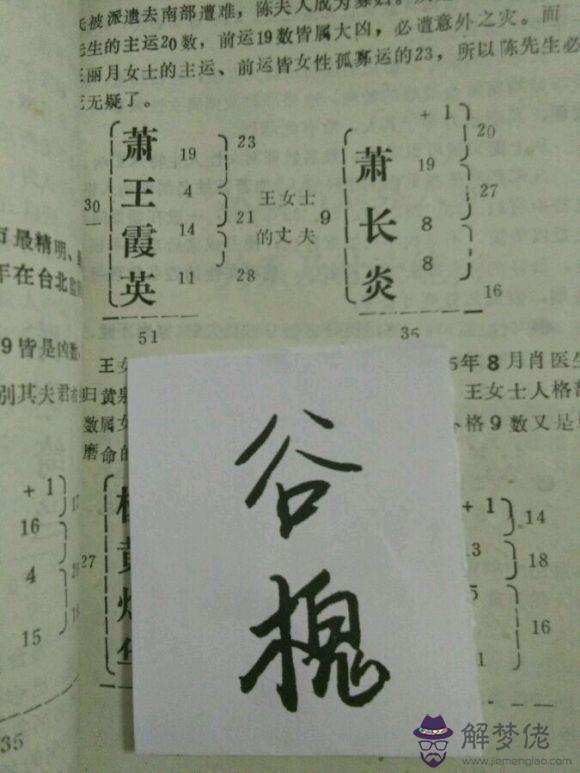 被派遣去南部遭难，陈夫人成为寡妇。
先生的主运20数，前运19数皆属大凶，必遭意外之灾。而
丽月女士的主运、前运皆女性孤寡运的23，所以陈先生必
无疑了。
30
一
萧 19
王 4
霞 14
英 11
23
21
28
51
王女士
的丈夫
9
+ 1
萧 19
长 8
炎 8
20
27
16
35
最精明、
年在台北
9皆是凶数
别其夫君
+ 1
16
4
15
35
王女
归 黄泉
数属女
磨 命的
年8月肖医生
王女士人格
格9数又是
27
谷
槐
+ 1
14
18
16
解梦佬
www.jiemenglao.com